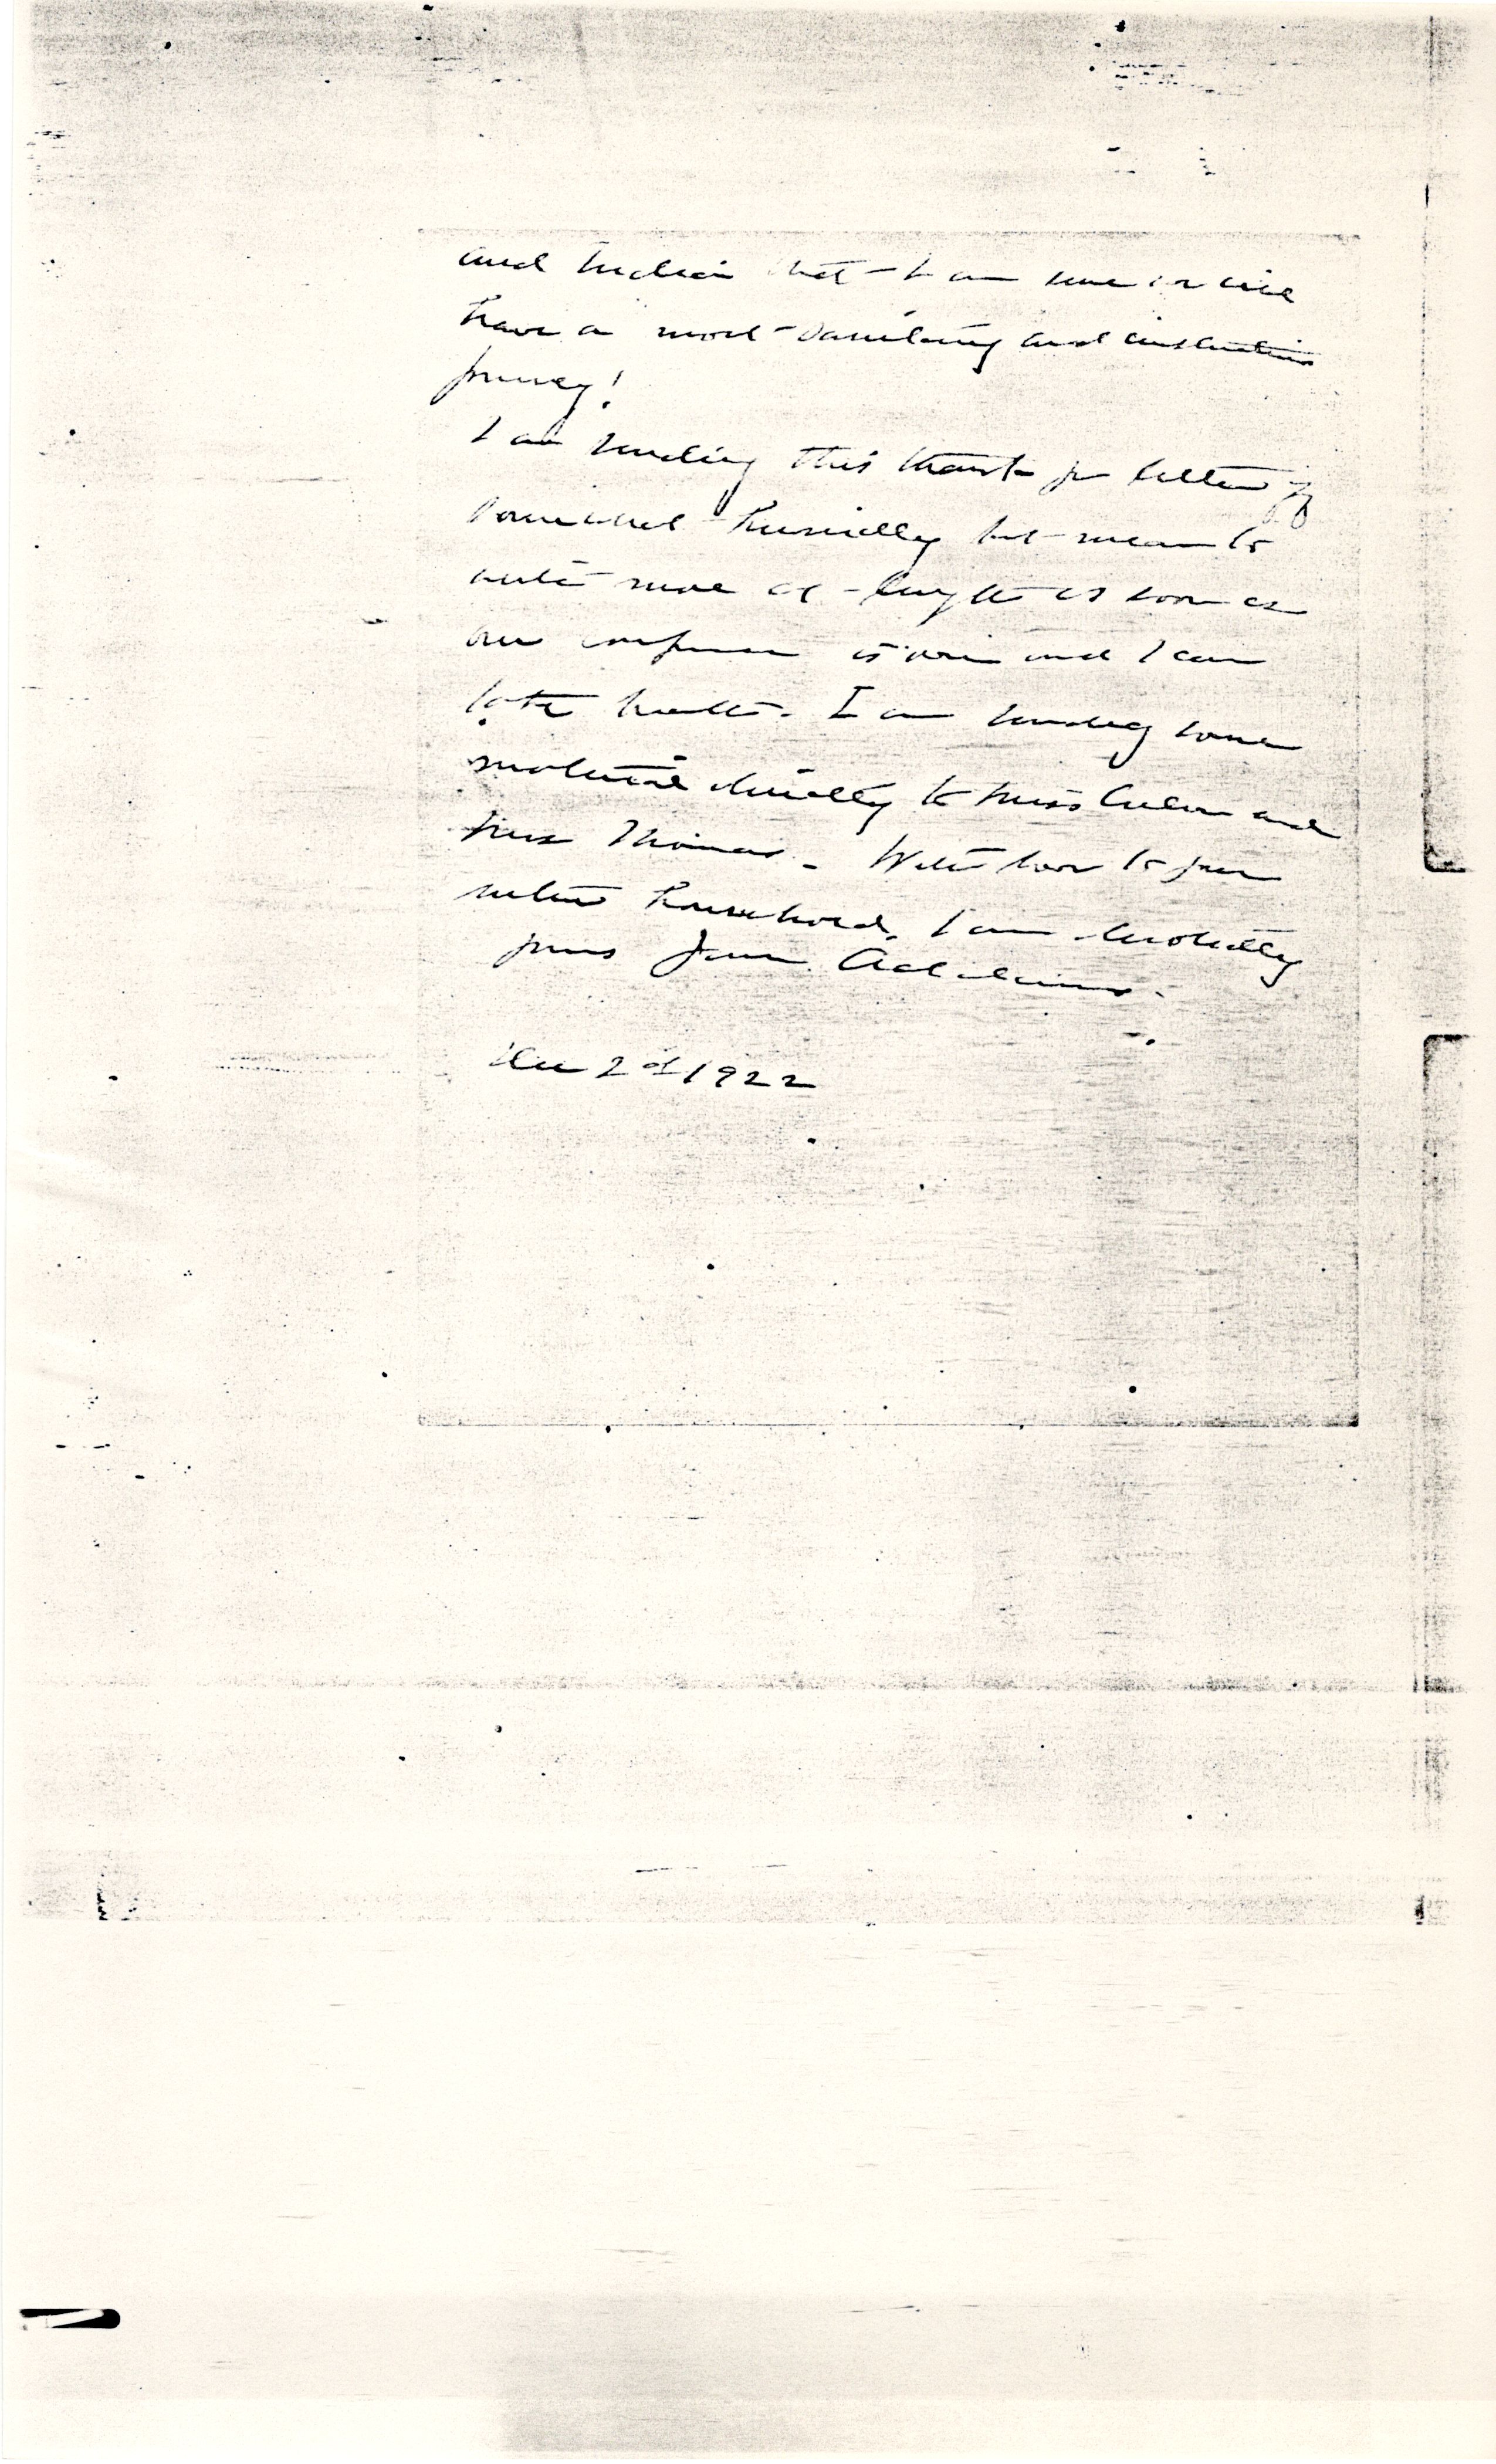 and India that I am sure we will
have a most fascinating and instructive
journey!
I am sending this thanks for letters of
somewhat hurriedly but mean to
write more at length as soon as
our conference is over and I can
take breath. I am sending some
material directly to Miss and
Miss Thomas. With love to your
entire household, I am devotedly
yours Jane Addams.
Dec 2d 1922